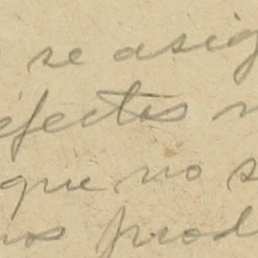 se asig
efectos n
que no s
nos prod